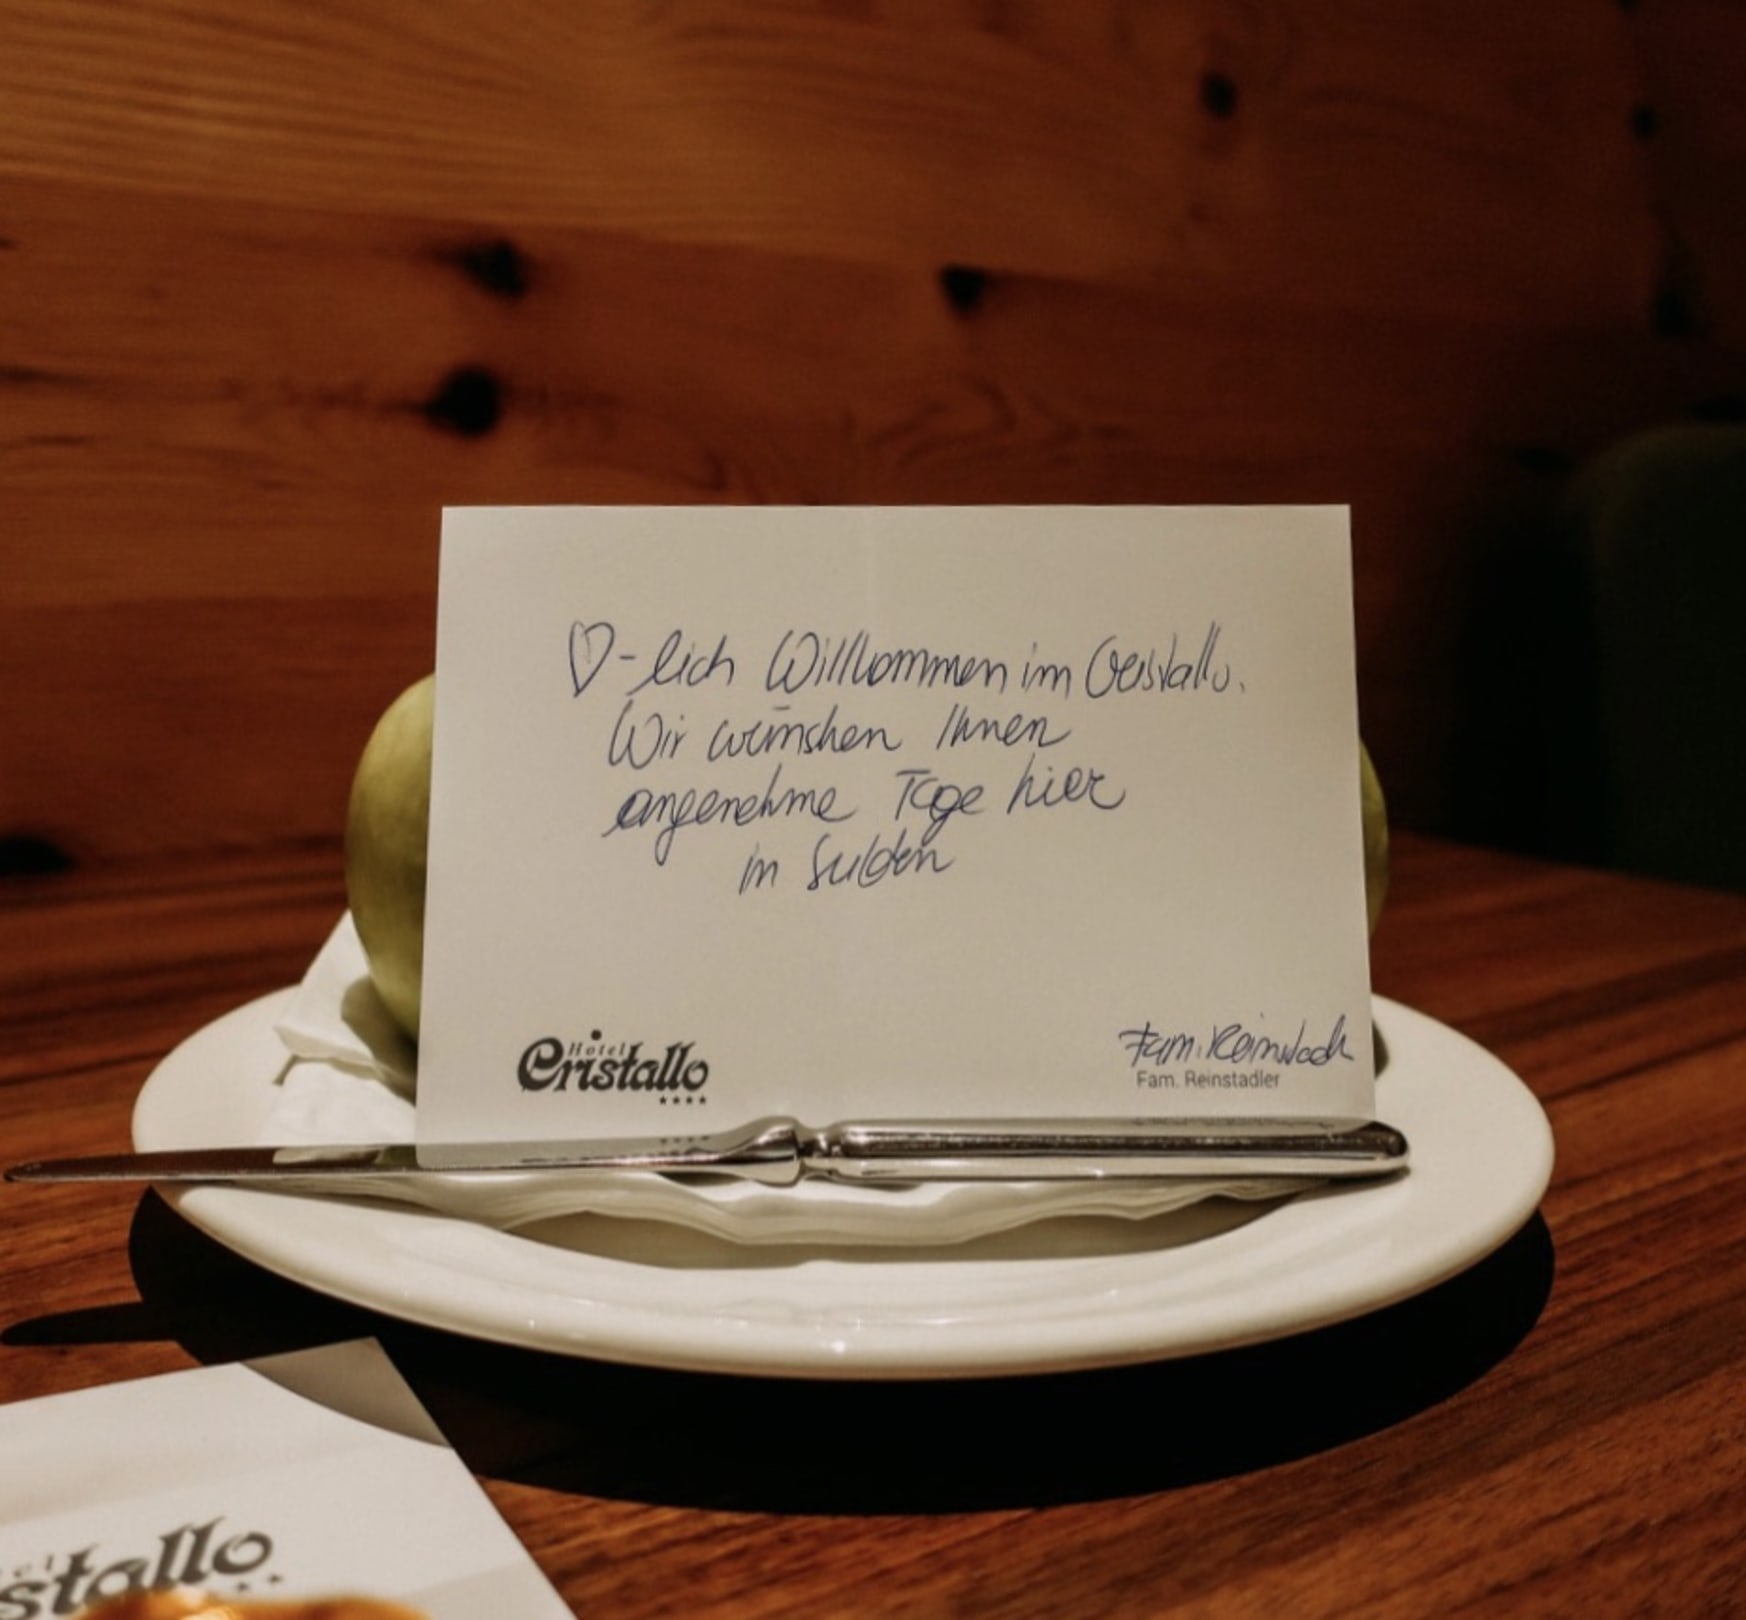 ♡-lich Willkommen im Cristallo.
Wir wünschen Ihnen
angenehme Tage hier
in Sulden
Hotel
Cristallo
****
Fam. Reinstadler
Fam. Reinstadler
el
stallo